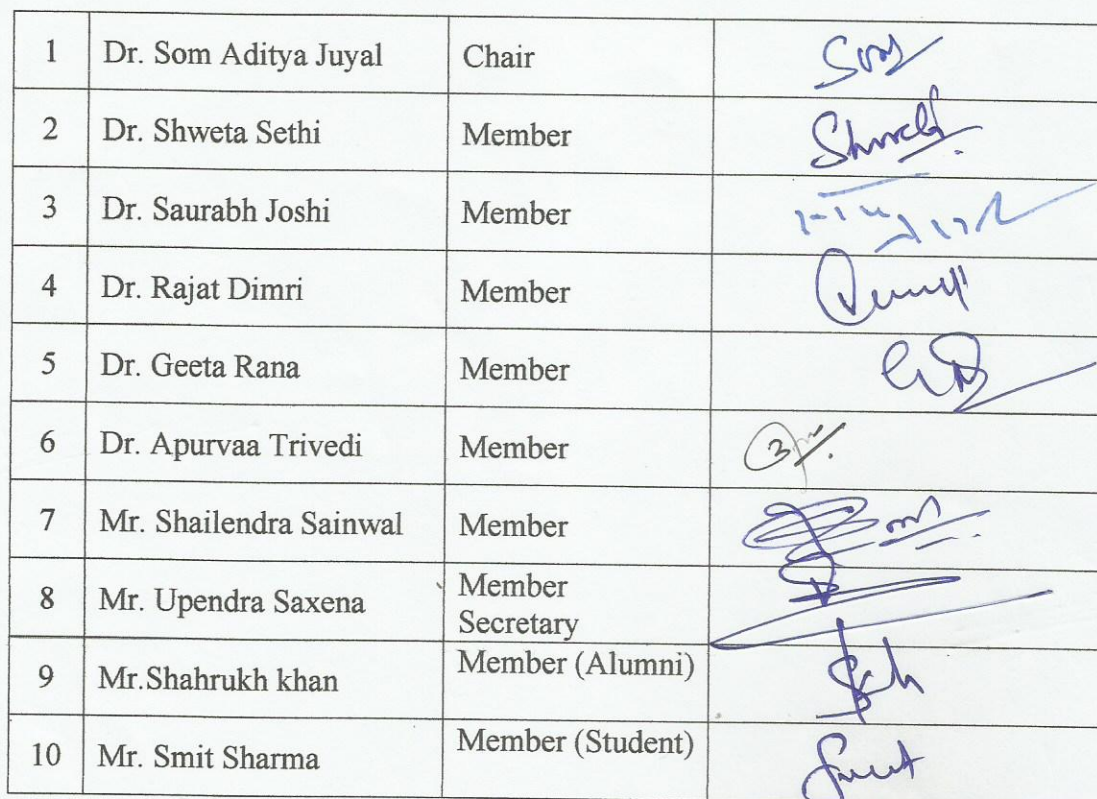 1 Dr. Som Aditya Juyal Chair Som
2 Dr. Shweta Sethi Member
3 Dr. Saurabh Joshi Member
4 Dr. Rajat Dimri Member
5 Dr. Geeta Rana Member
6 Dr. Apurvaa Trivedi Member
7 Mr. Shailendra Sainwal Member
8 Mr. Upendra Saxena Member
Secretary
9 Mr.Shahrukh khan Member (Alumni)
10 Mr. Smit Sharma Member (Student)